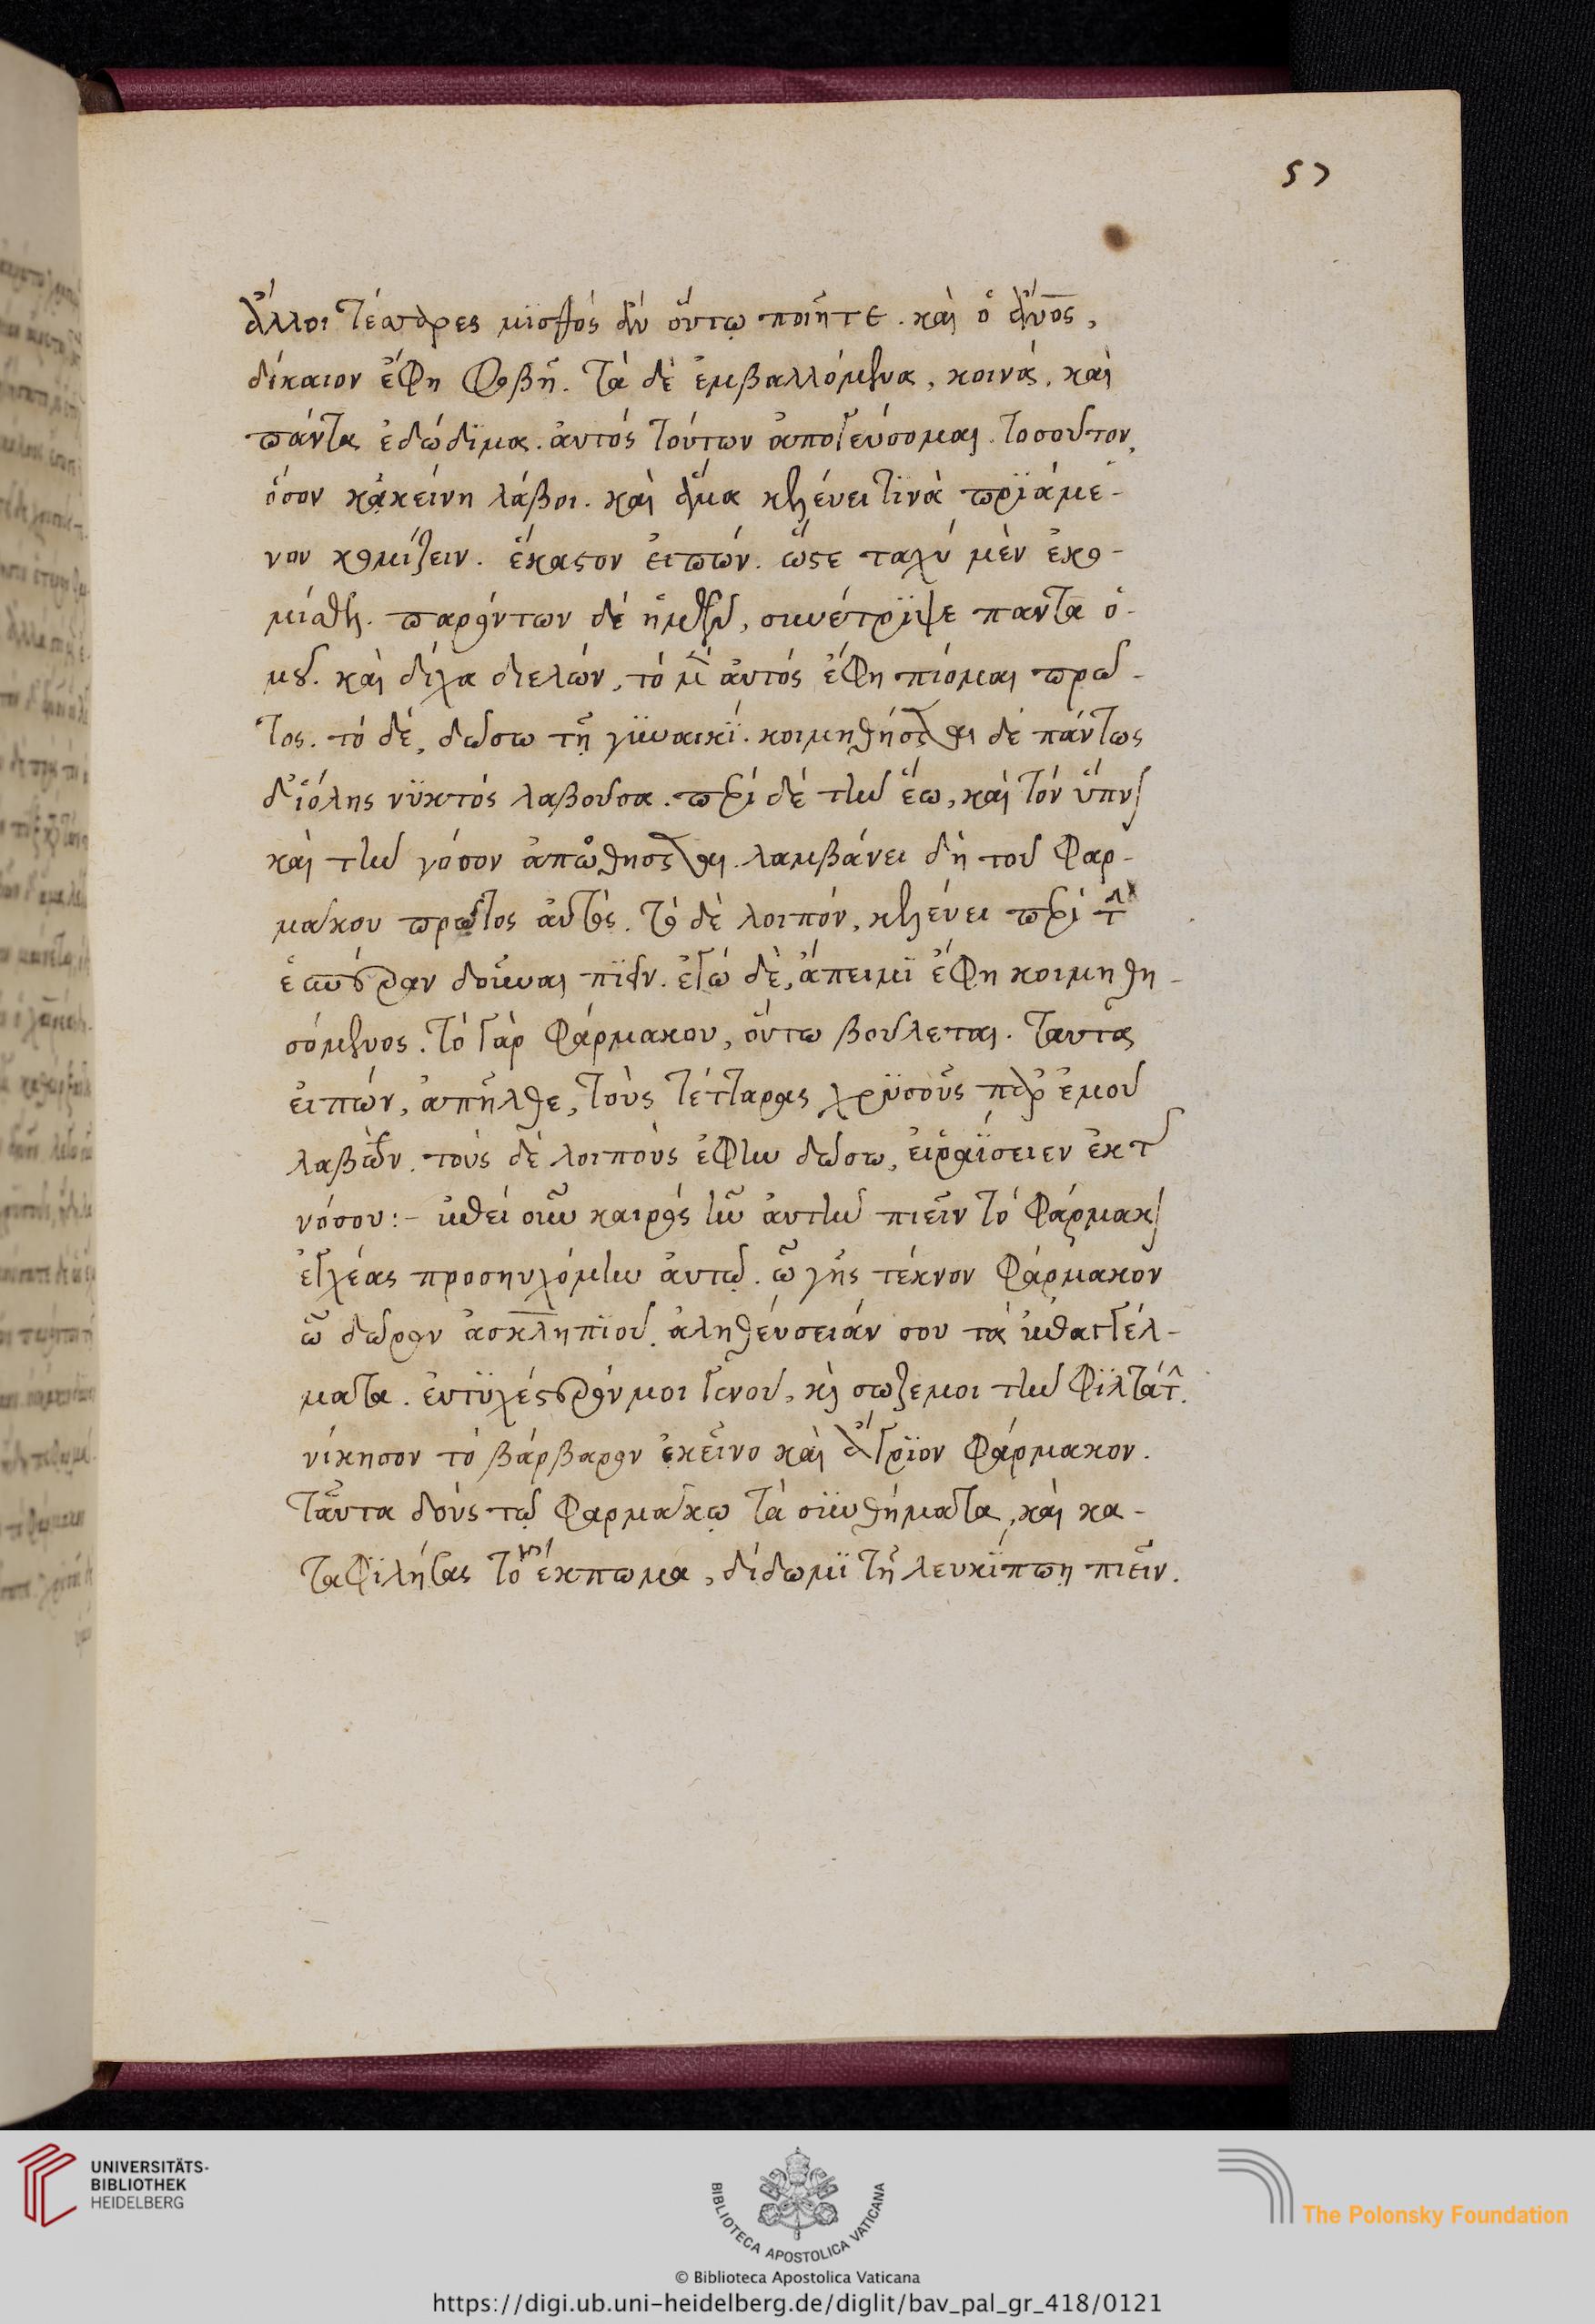 57
ἄλλοι τέσσαρες μϊσθός ἂν οὕτω ποιῆτε. καὶ ὁ ἄνος,
δίκαιον ἔφη φοβῆ. τὰ δὲ ἐμβαλλόμενα, κοινά. καὶ
πάντα ἐδώδϊμα. ἀυτός τούτων ἀπογεύσομαι. τοσοῦτον,
ὅσον κἀκείνη λάβοι. καὶ ἅμα κελέυει τϊνὰ πρϊάμε-
νον κομίζειν. ἕκαστον ἐιπών. ὥστε ταχύ μὲν ἐκο-
μίσθη. παρόντων δέ ἡμῶν, συνέτρϊψε παντα ὁ-
μοῦ. καὶ δίχα διελών, τό μὲν ἀυτός ἔφη πίομαι πρῶ-
τος. τό δέ, δώσω τῆ γϋναικϊ. κοιμηθήσεται δὲ πάντως
δἰόλης νϋκτός λαβοῦσα. περὶ δέ τὴν ἕω, καὶ τόν ὕπνον
καὶ τὴν νόσον ἀπώθησεται. λαμβάνει δὴ τοῦ φαρ-
μάκου πρῶτος ἀυτός. τὸ δὲ λοιπόν, κελέυει περὶ τὴν
ἑσπέραν δοῦναι πϊεῖν. ἐγώ δὲ, ἄπειμϊ ἔφη κοιμηθη-
σόμενος. τό γάρ φάρμακον, οὕτω βούλεται. ταῦτα
ἐιπών, ἀπῆλθε, τοὺς τέτταρας χρϋσοῦς παρ ἐμοῦ
λαβών. τοὺς δὲ λοιποὺς ἔφην δώσω, ἐι ῥαΐσειεν ἐκ τῆς
νόσου:- ἐπεί οὖν καιρός ἦν ἀυτὴν πιεῖν τό φάρμακον
ἐγχέας προσηυχόμην ἀυτῷ. ὦ γῆς τέκνον φάρμακον
ὦ δῶρον ἀσκληπϊοῦ. ἀληθέυσειάν σου τὰ ἐπαγγέλ-
ματα. ἐυτϋχέστερόν μοι γενοῦ, κὶ σῶζε μοι τὴν φϊλτάτην.
νίκησον τό βάρβαρον ἐκεῖνο καὶ ἄγρϊον φάρμακον.
ταῦτα δοὺς τῷ φαρμάκῳ τὰ συνθήματα, καὶ κα-
ταφϊλήσας τὸ ἔκπωμα, δίδωμϊ τῆ λευκίππη πιεῖν.
UNIVERSITÄTS-
BIBLIOTHEK
HEIDELBERG
BIBLIOTECA APOSTOLICA VATICANA
The Polonsky Foundation
© Biblioteca Apostolica Vaticana
https://digi.ub.uni-heidelberg.de/diglit/bav_pal_gr_418/0121